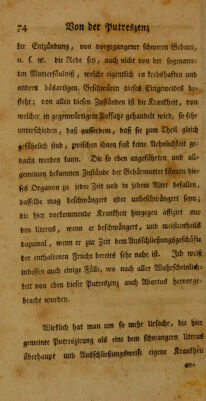 74 Von der Putreszenz
ter Entzündung, von vorgegangener schweren Geburt,
u. s. w. die Rede sey, auch nicht von der sogenann-
ten Mutterfäulniß, welche eigentlich in krebshaften und
andern bösartigen Geschwüren dieses Eingeweides be-
steht; von allen diesen Zuständen ist die Krankheit, von
welcher in gegenwärtigem Aufsatze gehandelt wird, so sehr
unterschieden, daß ausserdem, daß sie zum Theil gleich
gefährlich sind, zwischen ihnen fast keine Aehnlichkeit ge-
dacht werden kann. Die so eben angeführten und all-
gemeinen bekannten Zustände der Gebärmutter können die-
ses Organon zu jeder Zeit und in jedem Alter befallen,
dasselbe mag beschwängert oder unbeschwängert seyn;
die hier vorkommende Krankheit hingegen affizirt nur
den Uterus, wenn er beschwängert, und meistentheils
dazumal, wenn er zur Zeit dem Ausschließungsgeschäfte
der enthaltenen Frucht bereits sehr nahe ist. Ich weiß
indessen auch einige Fälle, wo nach aller Wahrscheinlich-
keit von eben dieser Putreszenz auch Abortus hervorge-
bracht wurden.
Wirklich hat man um so mehr Ursache, die hier
gemeinte Putreszirung als eine dem schwangern Uterus
überhaupt und Ausschließungsweise eigene Krankheit
an-